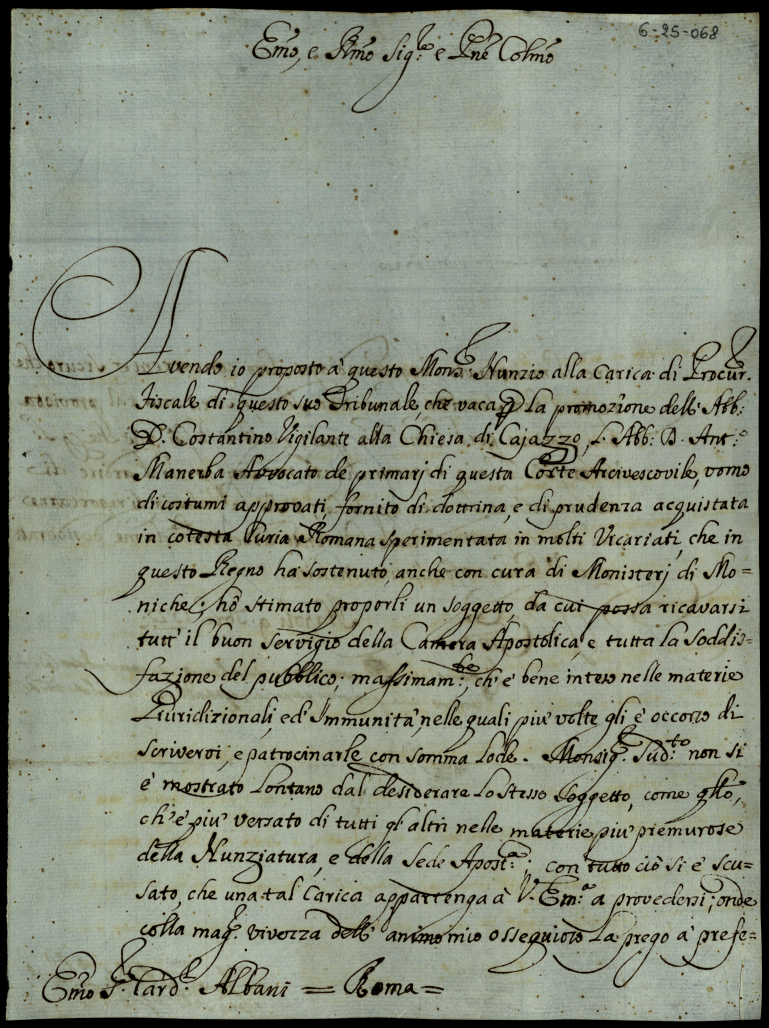 6-25-068
Emo, e Rmo Sig.re e Pne Colmo
Avendo io proposto à questo Mons.r Nunzio alla Carica di Procur.r
Fiscale di questo suo Tribunale, che vaca p la promozione dell' Abb:
D. Costantino Vigilante alla Chiesa di Cajazzo, l'Abb: D. Ant:o
Manerba Avvocato de primarj di questa Corte Arcivescovile, uomo
di costumi approvati, fornito di dottrina, e di prudenza acquistata
in cotesta Curia Romana sperimentata in molti Vicariati, che in
questo Regno ha sostenuto, anche con cura di Monisterj di Mo=
niche; hò stimato proporli un soggetto, da cui possa ricavarsi
tutt' il buon servigio della Camera Apostolica, e tutta la soddis=
fazione del pubblico; massimam:te, ch'è bene inteso nelle materie
Giuridizionali, ed' Immunità, nelle quali più volte gli è occorso di
scriversi, e patrocinarle con somma lode. Monsig.r Sud:to non si
è mostrato lontano dal desiderare lo stesso soggetto, come qllo,
ch'è più versato di tutti gl'altri nelle materie più premurose
della Nunziatura, e della Sede Apost:a; con tutto ciò si è scu=
sato, che una tal Carica appartenga à V. Em:a a provedersi; onde
colla mag.r vivezza dell' animo mio ossequioso la prego à prefe=
Emo S.r Card.l Albani = Roma =